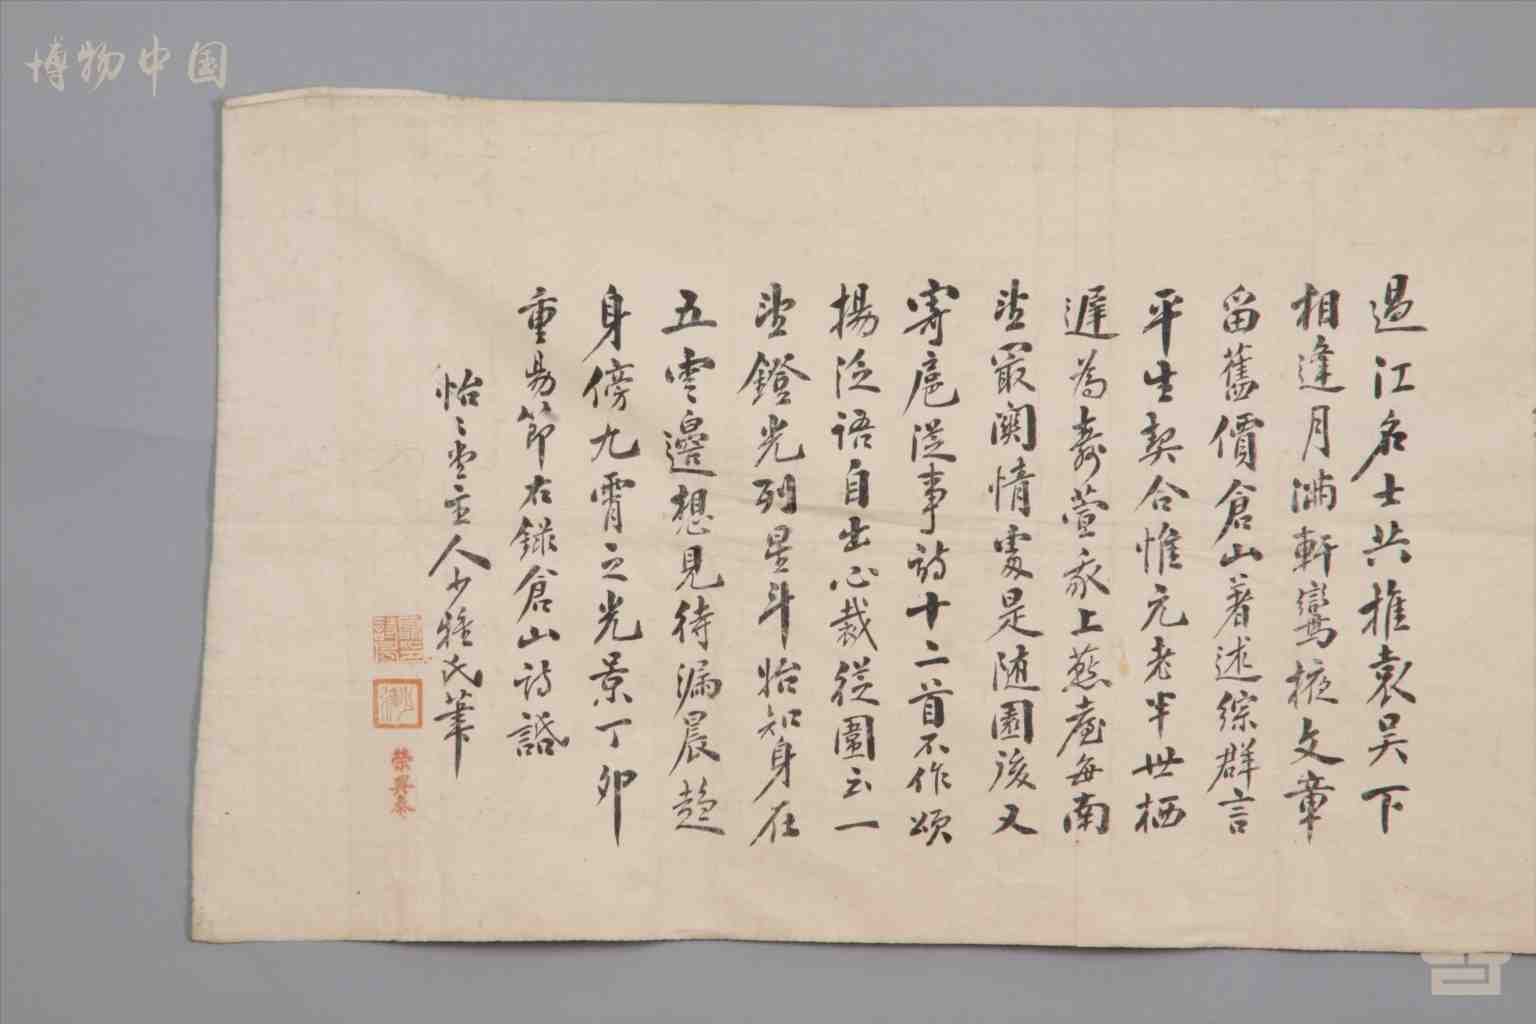 博物中国
過江名士共推袁吴下
相逢月满軒鸞掖文章
留舊價倉山著述綜群言
平生契合惟元老半世栖
遲為壽萱最上燕臺每南
望最関情處是随園後又
寄扈從事詩十二首不作頌
揚泛語自出心裁從圍云一
望鐙光列星斗始知身在
五雲邊想見待漏晨趨
身傍九霄之光景丁卯
重昜節右録倉山詩話
怡〻堂主人少雅氏筆
榮興泰